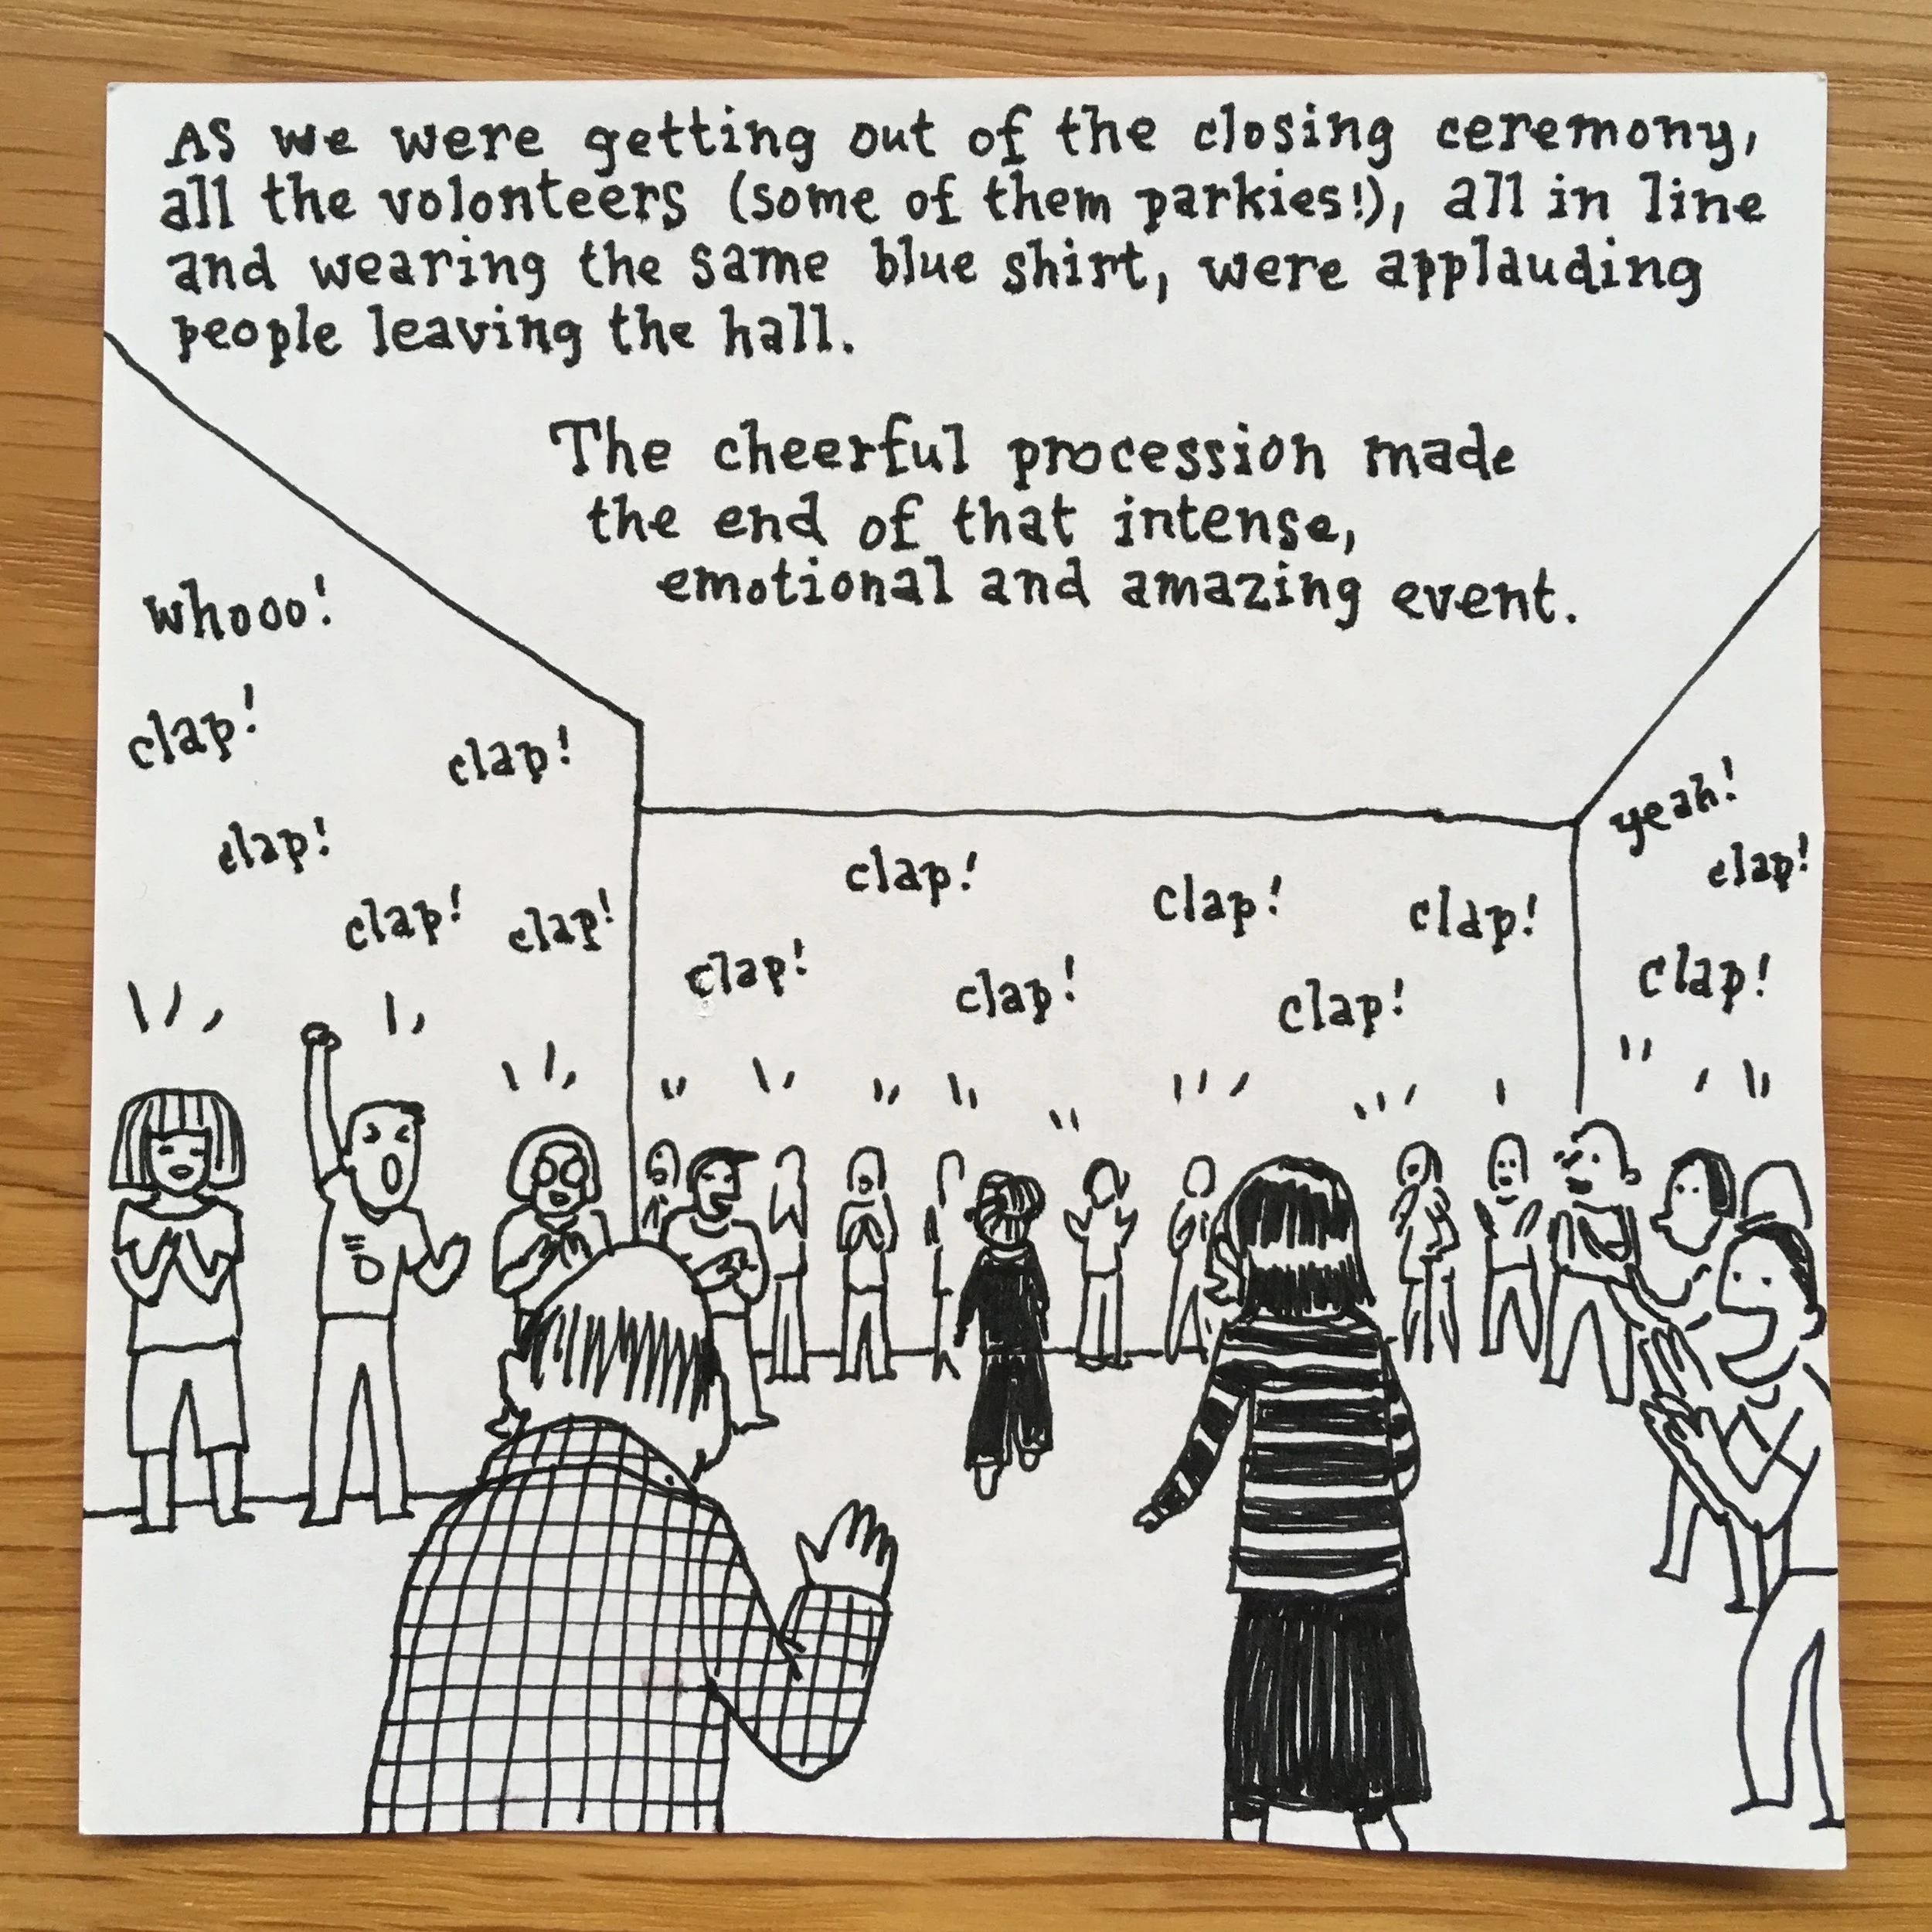 As we were getting out of the closing ceremony,
all the volonteers (some of them parkies!), all in line
and wearing the same blue shirt, were applauding
people leaving the hall.
The cheerful procession made
the end of that intense,
emotional and amazing event.
whooo!
clap!
clap!
clap!
clap!
clap!
clap!
clap!
clap!
clap!
clap!
clap!
yeah!
clap!
clap!